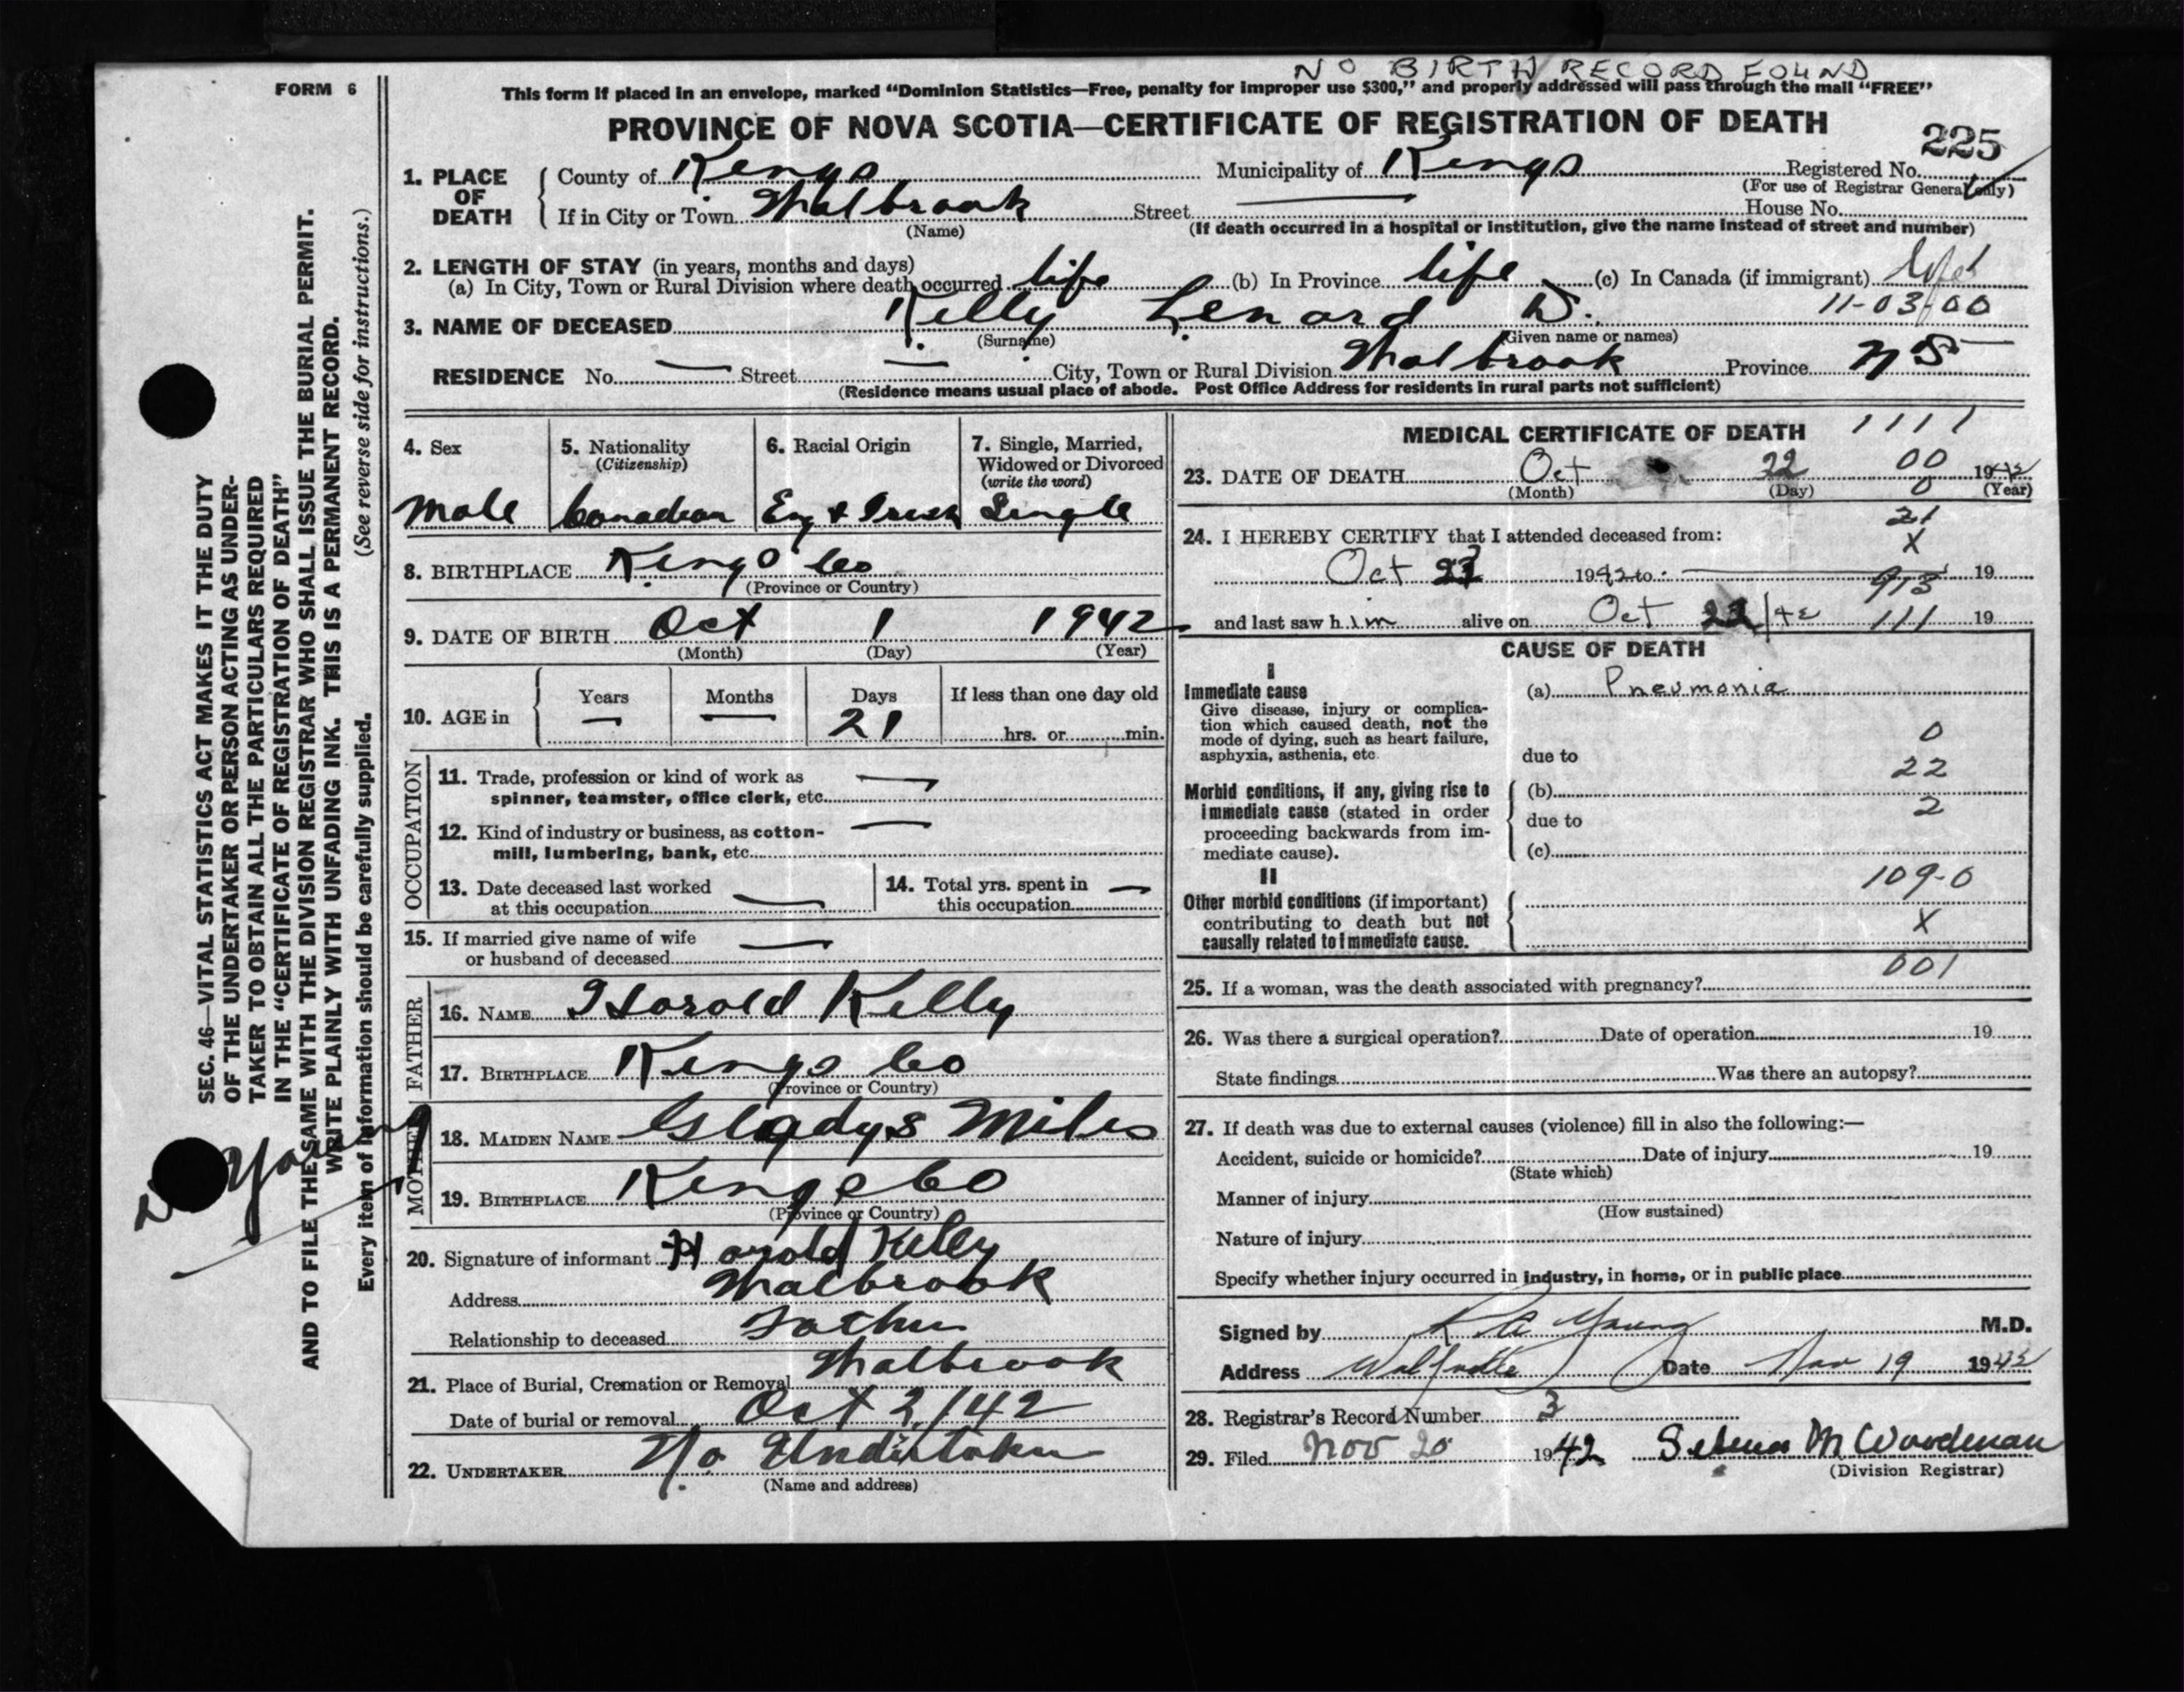 NO BIRTH RECORD FOUND
FORM 6
This form if placed in an envelope, marked "Dominion Statistics—Free, penalty for improper use $300," and properly addressed will pass through the mail "FREE"
PROVINCE OF NOVA SCOTIA—CERTIFICATE OF REGISTRATION OF DEATH
225
1. PLACE OF DEATH { County of Kings Municipality of Kings Registered No.
(For use of Registrar General only)
If in City or Town Malbrook Street — House No.
(Name) (If death occurred in a hospital or institution, give the name instead of street and number)
2. LENGTH OF STAY (in years, months and days)
(a) In City, Town or Rural Division where death occurred life (b) In Province life (c) In Canada (if immigrant)
11-03-00
3. NAME OF DECEASED Kelly Lenard D.
(Surname) (Given name or names)
RESIDENCE No. — Street — City, Town or Rural Division Malbrook Province NS
(Residence means usual place of abode. Post Office Address for residents in rural parts not sufficient)
4. Sex
Male
5. Nationality
(Citizenship)
Canadian
6. Racial Origin
Eng & Irish
7. Single, Married,
Widowed or Divorced
(write the word)
Single
8. BIRTHPLACE Kings Co
(Province or Country)
9. DATE OF BIRTH Oct 1 1942
(Month) (Day) (Year)
10. AGE in { Years — Months — Days 21 If less than one day old
hrs. or min.
OCCUPATION
11. Trade, profession or kind of work as —
spinner, teamster, office clerk, etc.
12. Kind of industry or business, as cotton- —
mill, lumbering, bank, etc.
13. Date deceased last worked
at this occupation —
14. Total yrs. spent in —
this occupation
15. If married give name of wife —
or husband of deceased
FATHER
16. NAME Harold Kelly
17. BIRTHPLACE Kings Co
(Province or Country)
MOTHER
18. MAIDEN NAME Gladys Miles
19. BIRTHPLACE Kings Co
(Province or Country)
20. Signature of informant Harold Kelly
Address Malbrook
Relationship to deceased Father
21. Place of Burial, Cremation or Removal Malbrook
Date of burial or removal Oct 2/42
22. UNDERTAKER No Undertaker
(Name and address)
MEDICAL CERTIFICATE OF DEATH 1111
23. DATE OF DEATH Oct 22 00 1942
(Month) (Day) 0 (Year)
21
24. I HEREBY CERTIFY that I attended deceased from: X
Oct 1942 to — 913 19
and last saw him alive on Oct 22/42 111 19
CAUSE OF DEATH
I
Immediate cause (a) Pneumonia
Give disease, injury or complica-
tion which caused death, not the
mode of dying, such as heart failure, 0
asphyxia, asthenia, etc. due to
22
Morbid conditions, if any, giving rise to (b)
immediate cause (stated in order 2
proceeding backwards from im- due to
mediate cause). (c)
II 109-0
Other morbid conditions (if important)
contributing to death but not X
causally related to immediate cause.
001
25. If a woman, was the death associated with pregnancy?
26. Was there a surgical operation? Date of operation 19
State findings Was there an autopsy?
27. If death was due to external causes (violence) fill in also the following:—
Accident, suicide or homicide? Date of injury 19
(State which)
Manner of injury
(How sustained)
Nature of injury
Specify whether injury occurred in industry, in home, or in public place
Signed by R A Young M.D.
Address Wolfville Date Nov 19 1942
28. Registrar's Record Number 3
29. Filed Nov 20 1942 Selena M Woodman
(Division Registrar)
SEC. 46—VITAL STATISTICS ACT MAKES IT THE DUTY
OF THE UNDERTAKER OR PERSON ACTING AS UNDER-
TAKER TO OBTAIN ALL THE PARTICULARS REQUIRED
IN THE "CERTIFICATE OF REGISTRATION OF DEATH"
AND TO FILE THE SAME WITH THE DIVISION REGISTRAR WHO SHALL ISSUE THE BURIAL PERMIT.
WRITE PLAINLY WITH UNFADING INK. THIS IS A PERMANENT RECORD.
Every item of information should be carefully supplied. (See reverse side for instructions.)
Young